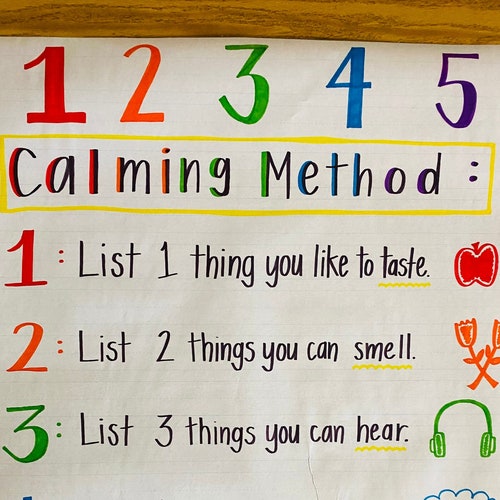 1 2 3 4 5
Calming Method:
1: List 1 thing you like to taste.
2: List 2 things you can smell.
3: List 3 things you can hear.